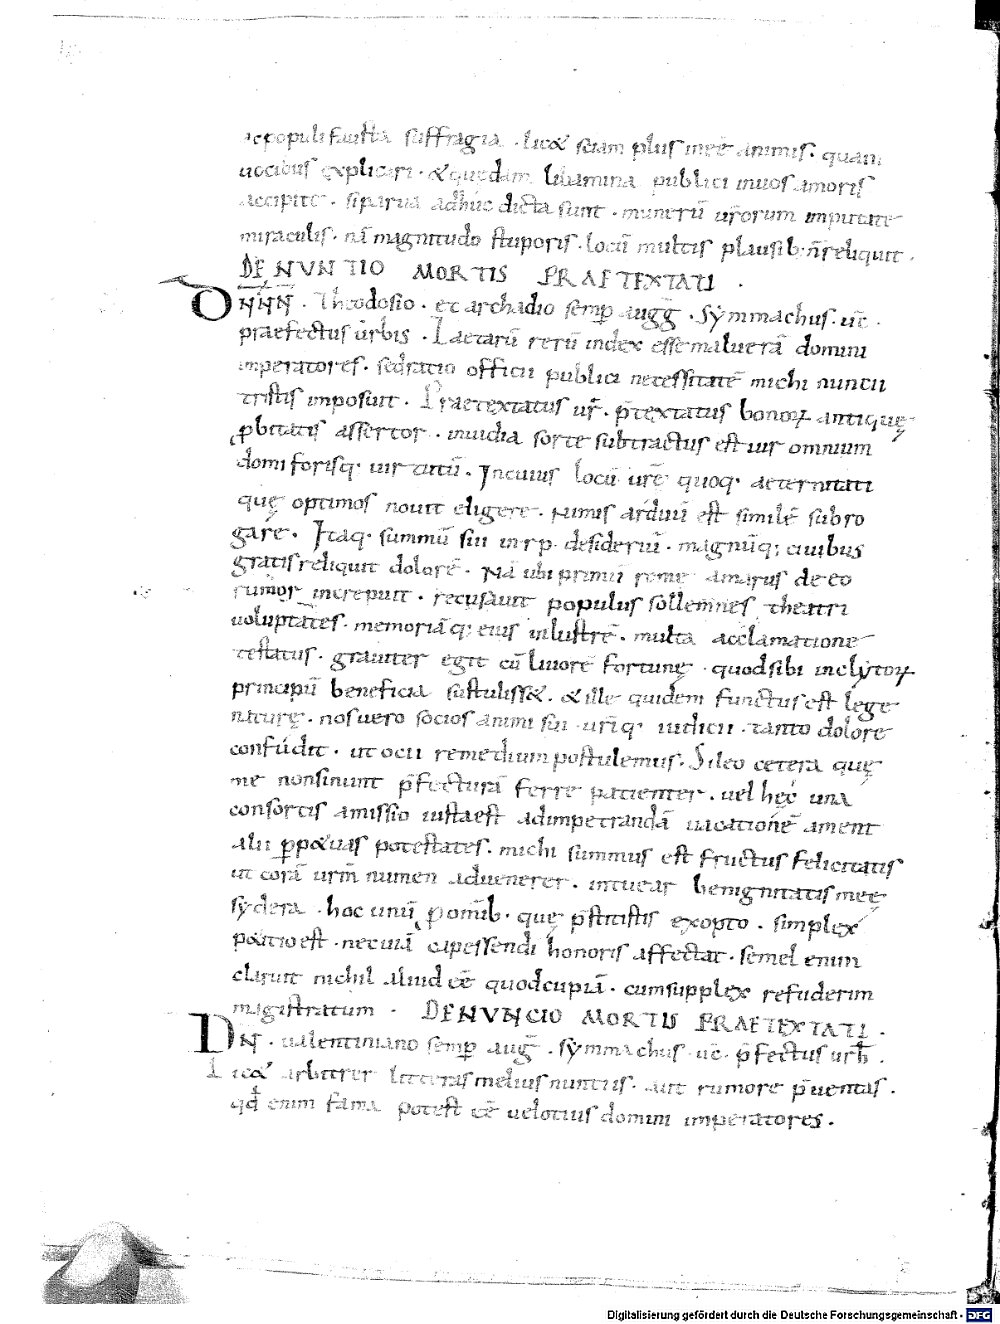 ac populi fausta suffragia · lic& sciam plus meę animis · quam
uocibus explicari · & quędam libamina publici in uos amoris
accipite · si parua adhuc dicta sunt · munerū ur̄orum imputate
miraculis · nā magnitudo stuporis · locū multis plausib; n̄ reliquit ·
DE NVNTIO MORTIS PRAETEXTATI ·
DNNN · Theodosio · et archadio semp augg · Symmachus · uc̄ ·
praefectus urbis · Laetarū rerū index esse maluerā domini
imperatores · sed ratio officii publici necessitatē michi nuncii
tristis imposuit · Praetextatus ur̄ · p̄textatus bonoꝝ antiquę
ꝓbitatis assertor · inuidia sorte subtractus est uir omnium
domi forisq; uirtutū · In cuius locū urē quoq; aeternitati
quę optimos nouit eligere · nimis arduū est similē subro
gare · Itaq; summū sui in r p desideriū · magnūq; ciuibus
gratis reliquit dolorē · Nā ubi primū rome amarus de eo
rumor increpuit · recusauit populus sollemnes theatri
uoluptates · memoriāq; eius inlustrē · multa acclamatione
testatus · grauiter egit cū liuore fortunę · quod sibi inclytoꝝ
principū beneficia sustuliss& · & ille quidem functus est lege
naturę · nos uero socios animi sui · ur̄iq; iudicii · tanto dolore
confudit · ut ocii remedium postulemus · Sileo cetera quę
me non sinunt p̄fecturā ferre patienter · uel hęc una
consortis amissio iusta est ad impetrandā uacationē ament
alii ꝑp&uas potestates · michi summus est fructus felicitatis
ut corā urm̄ numen aduenerer · intuear benignitatis meę
sydera · hoc unū ꝓ omīb · quę p̄stitistis exopto · simplex
p&itio est · nec uiā capessendi honoris affectat · semel enim
claruit nichil aliud eē quod cupiā · cum supplex refuderim
magistratum · DE NVNCIO MORTIS PRAETEXTATI ·
DN̄ · ualentiniano semp aug̅ · Symmachus uc̄ · p̄fectus urb̄ ·
Lic& arbitrer litteras melius nuntiis · aut rumore p̄uentas ·
qd enim fama potest eē uelotius domini imperatores ·
Digitalisierung gefördert durch die Deutsche Forschungsgemeinschaft - DFG